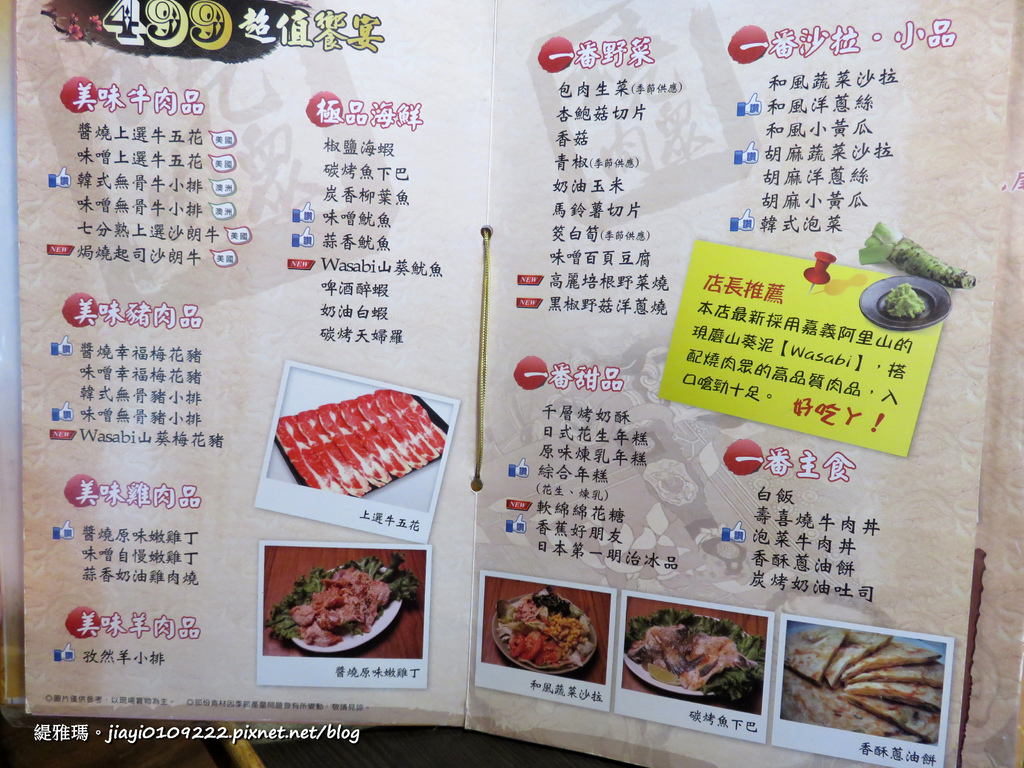 499超值饗宴
美味牛肉品
醬燒上選牛五花 美國
味噌上選牛五花 美國
讚 韓式無骨牛小排 澳洲
味噌無骨牛小排 澳洲
七分熟上選沙朗牛 美國
NEW 焗燒起司沙朗牛 美國
美味豬肉品
讚 醬燒幸福梅花豬
味噌幸福梅花豬
韓式無骨豬小排
讚 味噌無骨豬小排
NEW Wasabi山葵梅花豬
美味雞肉品
讚 醬燒原味嫩雞丁
味噌自慢嫩雞丁
蒜香奶油雞肉燒
美味羊肉品
讚 孜然羊小排
極品海鮮
椒鹽海蝦
碳烤魚下巴
炭香柳葉魚
讚 味噌魷魚
讚 蒜香魷魚
NEW Wasabi山葵魷魚
啤酒醉蝦
奶油白蝦
碳烤天婦羅
上選牛五花
醬燒原味嫩雞丁
◎圖片僅供參考，以現場實物為主。
一番野菜
包肉生菜(季節供應)
杏鮑菇切片
香菇
青椒(季節供應)
奶油玉米
馬鈴薯切片
筊白筍(季節供應)
味噌百頁豆腐
NEW 高麗培根野菜燒
NEW 黑椒野菇洋蔥燒
一番甜品
千層烤奶酥
日式花生年糕
原味煉乳年糕
讚 綜合年糕
(花生、煉乳)
NEW 軟綿綿花糖
讚 香蕉好朋友
日本第一明治冰品
一番沙拉・小品
和風蔬菜沙拉
讚 和風洋蔥絲
和風小黃瓜
讚 胡麻蔬菜沙拉
胡麻洋蔥絲
胡麻小黃瓜
讚 韓式泡菜
店長推薦
本店最新採用嘉義阿里山的
現磨山葵泥【Wasabi】，搭
配燒肉眾的高品質肉品，入
口嗆勁十足。
一番主食
白飯
壽喜燒牛肉丼
讚 泡菜牛肉丼
香酥蔥油餅
炭烤奶油吐司
和風蔬菜沙拉
碳烤魚下巴
香酥蔥油餅
緹雅瑪。jiayi0109222.pixnet.net/blog